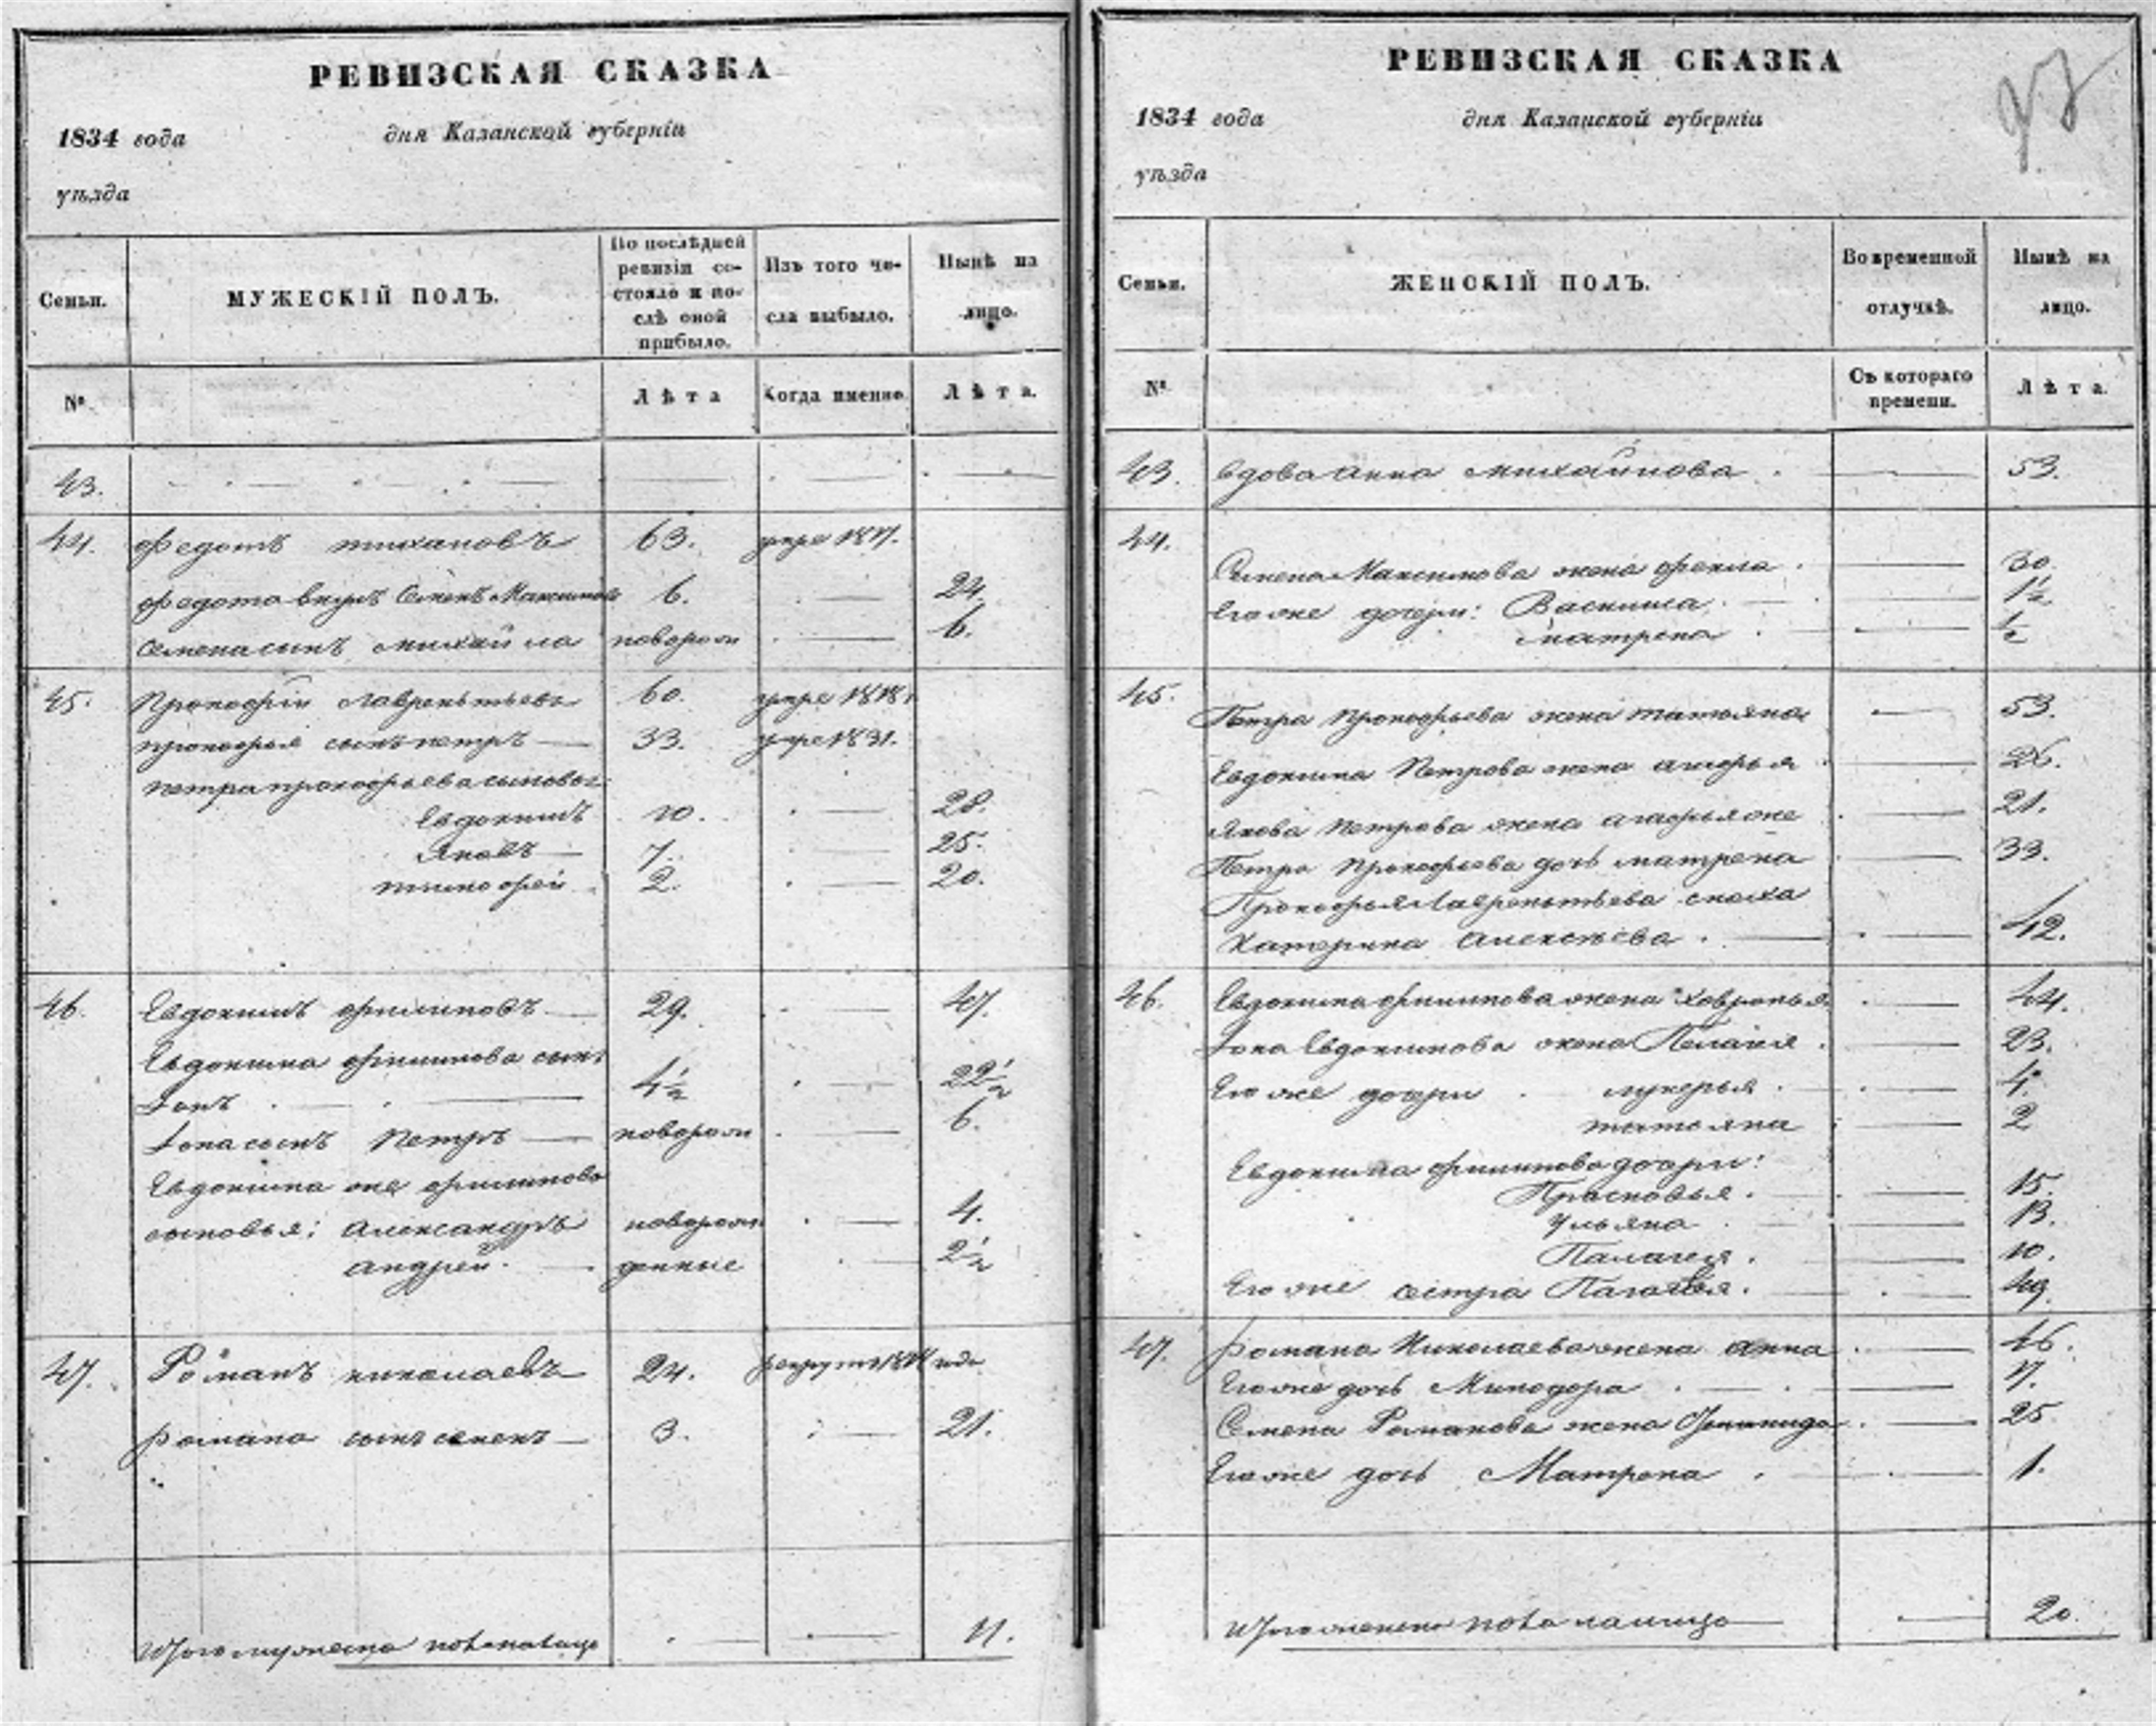 РЕВИЗСКАЯ СКАЗКА
1834 года дня Казанской губерніи
уѣзда
Семьи.
МУЖЕСКІЙ ПОЛЪ.
По послѣдней ревизіи со-
стояло и по-
слѣ оной
прибыло.
Изъ того чи-
сла выбыло.
Нынѣ на
лицо.
№
Лѣта
Когда именно.
Лѣта.
43.
44. Федотъ 63. умре
Федота внукъ Семенъ Максимовъ 6. 24.
Семена сынъ михайла новорож 6.
45. Прокофiй Лаврентьевъ 60. умре 1818.
прокофья сынъ петръ 33. умре 1831.
петра прокофьева сыновья
Евдокимъ 10. 28.
Яковъ 7. 25.
тимофей 2. 20.
46. Евдокимъ филиповъ 29. 47.
Евдокима филипова сынъ
Iонъ 4½ 22½
Iона сынъ петръ новорож 6.
Евдокима же филипова
сыновья: александръ новорож 4.
андрей денные 2½
47. Романъ николаевъ 24.
романа сынъ семенъ 3. 21.
Итого мужеска пола налицо 11.
РЕВИЗСКАЯ СКАЗКА
97
1834 года дня Казанской губерніи
уѣзда
Семьи.
ЖЕНСКІЙ ПОЛЪ.
Во временной
отлучкѣ.
Нынѣ на
лицо.
№
Съ котораго
времени.
Лѣта.
43. вдова анна михайлова 53.
44.
Семена Максимова жена фекла 30.
Его же дочери: Василиса 1½
матрена ½
45. Петра прокофьева жена татьяна 53.
Евдокима петрова жена агафья 26.
Якова петрова жена агафья же 21.
Петра Прокофьева дочь матрена 33.
Прокофья Лаврентьева сноха
Катерина алексѣева 42.
46. Евдокима филипова жена Ховронья 44.
Iона Евдокимова жена Пелагея 23.
Его же дочери лукерья 4.
татьяна 2
Евдокима филипова дочери:
Прасковья. 15.
Ульяна 13.
Палагея. 10.
Его же сестра 49.
47. романа Николаева жена анна 46.
Его же дочь Минодора 17.
Семена Романова жена 25
Его же дочь Матрена 1.
Итого женска пола налицо 20.